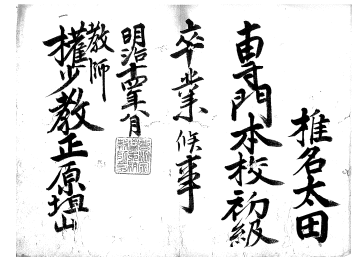 椎名太田
専門本校初級
卒業候事
明治十四年八月
教師
権少教正原坦山